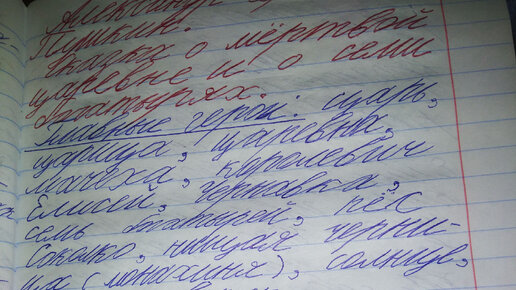 Александр
Пушкин.
Сказка о мёртвой
царевне и о семи
богатырях.
Главные герои: царь,
царица, царевна,
мачеха, королевич
Елисей, чернавка,
семь богатырей, пёс
Соколко, нищая черни-
ца (монахиня), солнце,